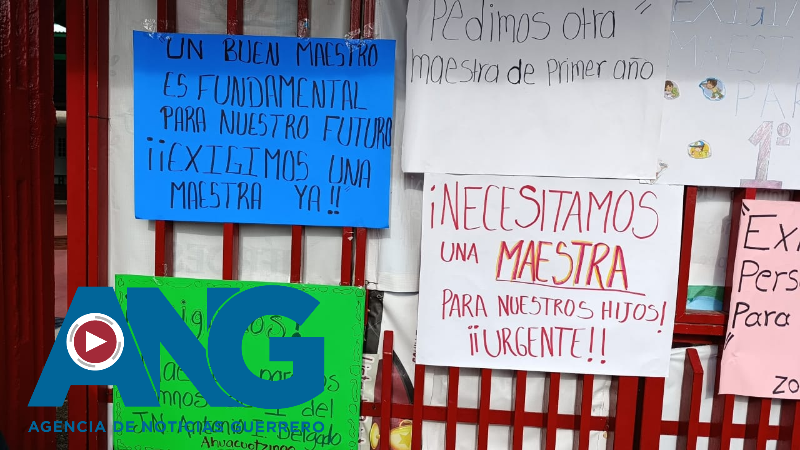 UN BUEN MAESTRO
ES FUNDAMENTAL
PARA NUESTRO FUTURO
¡¡EXIGIMOS UNA
MAESTRA YA!!
Pedimos otra
maestra de primer año
EXIGI
PAR
1º
¡NECESITAMOS
UNA MAESTRA
PARA NUESTROS HIJOS!
¡¡URGENTE!!
"Exi
Perso
Para
ZO
del
Delgado
Ahuacuotzingo
ANG
AGENCIA DE NOTICIAS GUERRERO